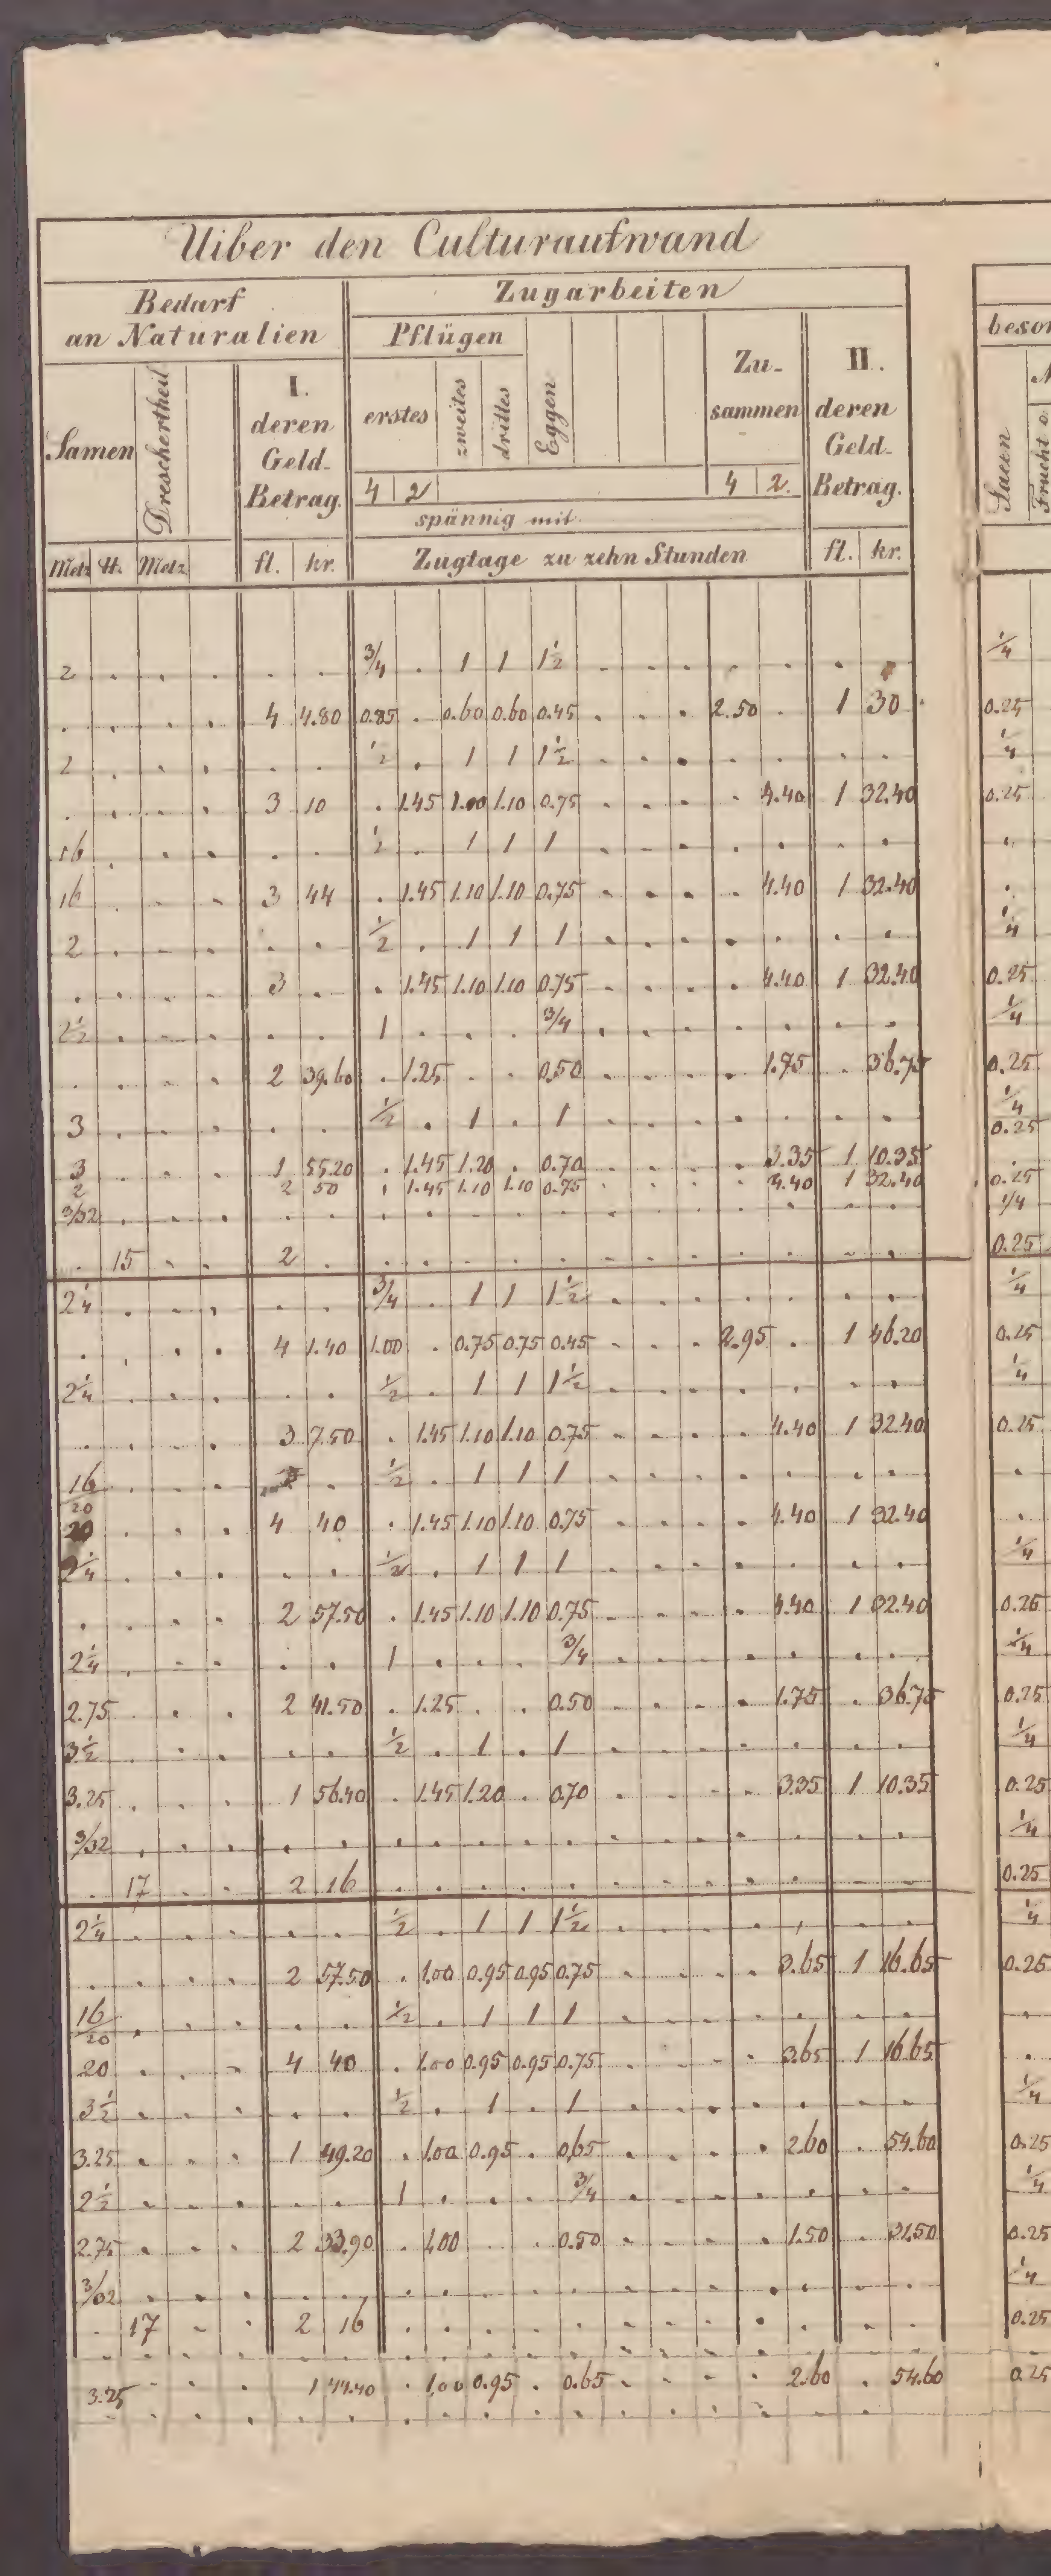 Uiber den Culturaufwand
Bedarf an Naturalien
Zugarbeiten
Samen
Dreschertheil
I. deren Geld-Betrag.
Pflügen
erstes
zweites
drittes
Eggen
Zu-sammen
II. deren Geld-Betrag.
4 2
4 2.
spännig mit
Metz
Metz
fl. kr.
Zugtage zu zehn Stunden
fl. kr.
beson
Saeen
Frucht o.
2 . . . . . 3/4 . 1 1 1 1/2 . . . . . . . 1/4
. . . . 4 4.80 0.85 . 0.60 0.60 0.45 . . . 2.50 . 1 30 0.25
2 . . . . . 1/2 . 1 1 1 1/2 . . . . . . . 1/4
. . . . 3 10 . 1.45 1.10 0.75 . . . . 4.40 1 32.40 0.25
16 . . . . . 1/2 . 1 1 1 . . . . . . . .
16 . . . 3 44 . 1.45 1.10 1.10 0.75 . . . . 4.40 1 32.40 .
2 . . . . . 1/2 . 1 1 1 . . . . . . . 1/4
. . . . 3 . . 1.45 1.10 1.10 0.75 . . . . 4.40 1 32.40 0.25
2 1/2 . . . . . 1 . . . 3/4 . . . . . . . 1/4
. . . . 2 39.60 . 1.25 . . 0.50 . . . . 1.75 . 36.75 0.25
3 . . . . . 1/2 . 1 . 1 . . . . . . . 1/4
0.25
3 . . . 1 55.20 . 1.45 1.20 . 0.70 . . . . 3.35 1 10.35 .
2 2 50 . 1.45 1.10 1.10 0.75 . . . . 4.40 1 32.40 0.25
3/32 . . . . . . . . . . . . . . . . . 1/4
. 15 . . 2 . . . . . . . . . . . . . 0.25
2 1/4 . . . . . 3/4 . 1 1 1 1/2 . . . . . . . 1/4
. . . . 4 1.40 1.00 . 0.75 0.75 0.45 . . . 2.95 . 1 46.20 0.25
2 1/4 . . . . . 1/2 . 1 1 1 1/2 . . . . . . . 1/4
. . . . 3 7.50 . 1.45 1.10 1.10 0.75 . . . . 4.40 1 32.40 0.25
16/20 . . . . 1/2 . 1 1 1 . . . . . . . .
20 . . . 4 40 . 1.45 1.10 1.10 0.75 . . . . 4.40 1 32.40 .
2 1/4 . . . . . 1/2 . 1 1 1 . . . . . . . 1/4
. . . . 2 57.50 . 1.45 1.10 1.10 0.75 . . . . 4.40 1 32.40 0.25
2 1/4 . . . . . 1 . . . 3/4 . . . . . . . 1/4
2.75 . . . 2 41.50 . 1.25 . . 0.50 . . . . 1.75 . 36.75 0.25
3 1/2 . . . . . 1/2 . 1 . 1 . . . . . . . 1/4
3.25 . . . 1 56.40 . 1.45 1.20 . 0.70 . . . . 3.35 1 10.35 0.25
3/32 . . . . . . . . . . . . . . . . . 1/4
. 17 . . 2 16 . . . . . . . . . . . . 0.25
2 1/4 . . . . . 1/2 . 1 1 1 1/2 . . . . . . . 1/4
. . . . 2 57.50 . 1.00 0.95 0.95 0.75 . . . . 3.65 1 16.65 0.25
16/20 . . . . . 1/2 . 1 1 1 . . . . . . . .
20 . . . 4 40 . 1.00 0.95 0.95 0.75 . . . . 3.65 1 16.65 .
3 1/2 . . . . . 1/2 . 1 . 1 . . . . . . . 1/4
3.25 . . . 1 49.20 . 1.00 0.95 . 0.65 . . . . 2.60 . 54.60 0.25
2 1/2 . . . . . 1 . . . 3/4 . . . . . . . 1/4
2.75 . . . 2 33.90 . 1.00 . . 0.50 . . . . 1.50 . 31.50 0.25
3/32 . . . . . . . . . . . . . . . . . 1/4
. 17 . . 2 16 . . . . . . . . . . . . 0.25
3.25 . . . 1 44.40 . 1.00 0.95 . 0.65 . . . . 2.60 . 54.60 0.25